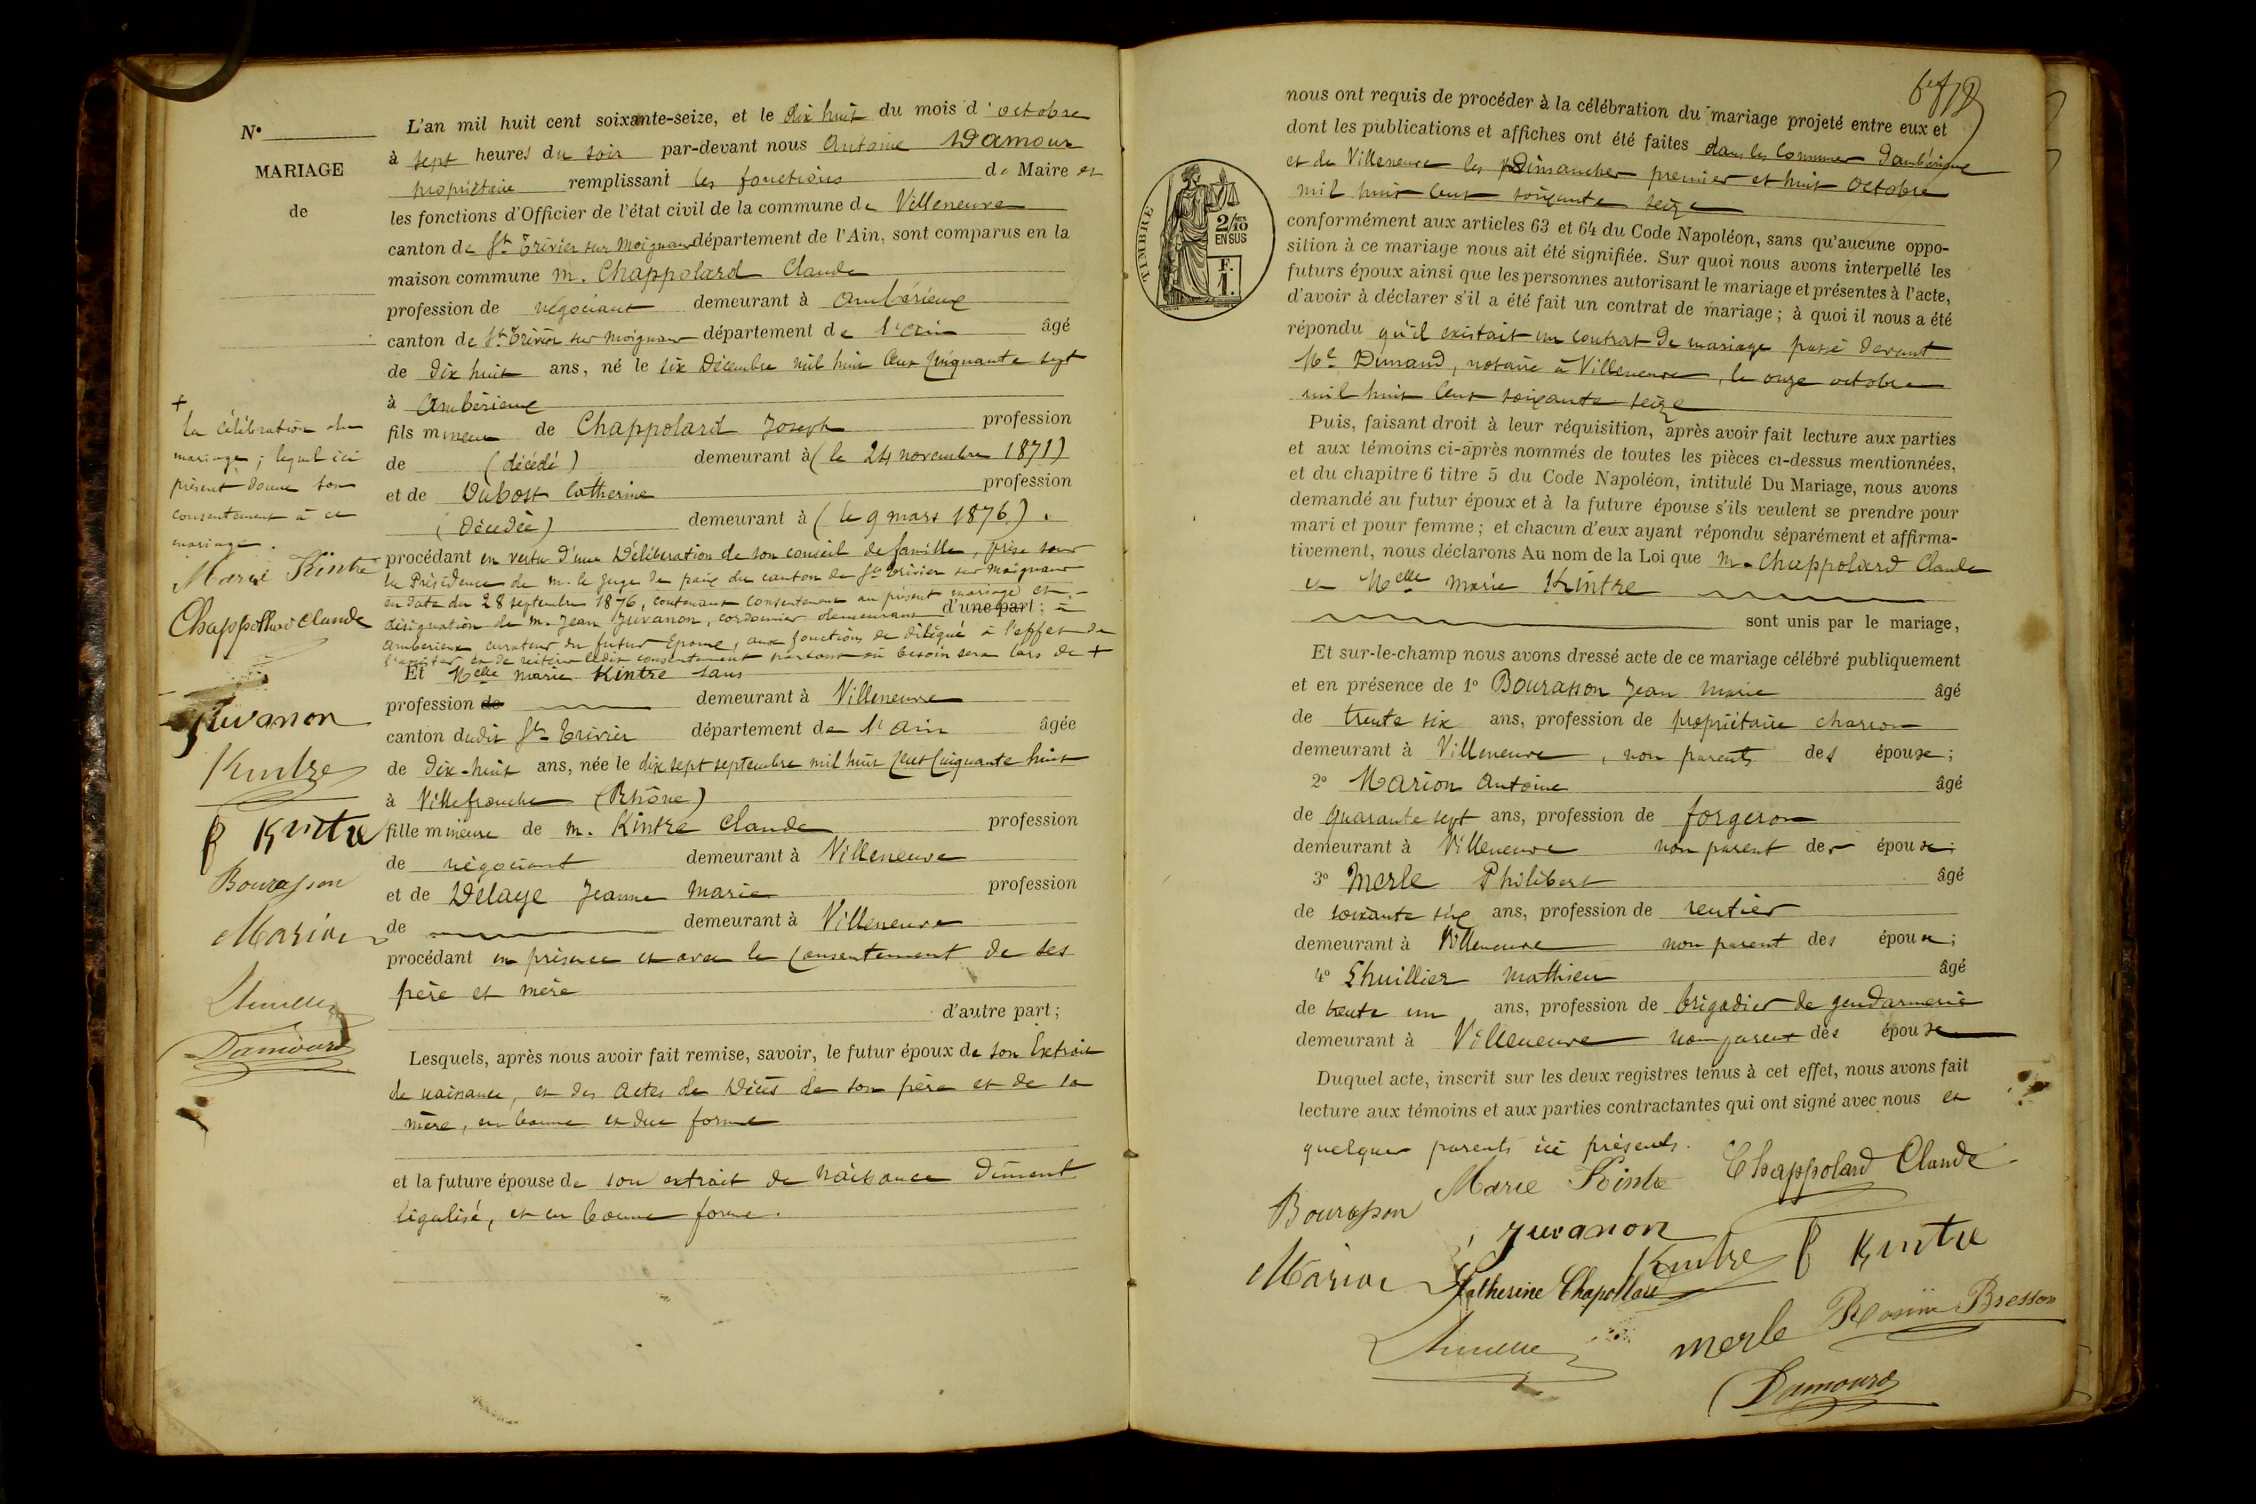 N°
MARIAGE
de
L'an mil huit cent soixante-seize, et le dix huit du mois d'octobre
à sept heures du soir par-devant nous Antoine Damour
propriétaire remplissant les fonctions de Maire et
les fonctions d'Officier de l'état civil de la commune de Villeneuve
canton de St Trivier sur Moignans département de l'Ain, sont comparus en la
maison commune M. Chappolard Claude
profession de négociant demeurant à Ambérieux
canton de St Trivier sur Moignans département de l'Ain âgé
de dix huit ans, né le six Décembre mil huit cent cinquante sept
à Ambérieux
fils mineur de Chappolard Joseph profession
de (décédé) demeurant à (le 24 novembre 1871)
et de Dubost Catherine profession
(Décédée) demeurant à (le 9 mars 1876).
procédant en vertu d'une Délibération de son conseil de famille, prise sous
la Présidence de M. le Juge de paix du canton de St Trivier sur Moignans
en date du 28 septembre 1876, contenant consentement au présent mariage et
désignation de M. Jean Juvanon, cordonnier demeurant d'une part ; à
Ambérieux curateur du futur Epoux, aux fonctions de délégué à l'effet de
l'assister et de réitérer ledit consentement partout où besoin sera lors de +
+
la célébration du
mariage ; lequel ici
présent donne son
consentement à ce
mariage.
Marie Kintre
Chappollard Claude
Juvanon
Kintre
Kintre
Bourasson
Marion
Lhuillier
Damour
Et Melle Marie Kintre sans
profession de demeurant à Villeneuve
canton dudit St Trivier département de l'Ain âgée
de dix-huit ans, née le dix sept septembre mil huit cent cinquante huit
à Villefranche (Rhône)
fille mineure de M. Kintre Claude profession
de négociant demeurant à Villeneuve
et de Delaye Jeanne Marie profession
de demeurant à Villeneuve
procédant en présence et avec le consentement de ses
père et mère
d'autre part ;
Lesquels, après nous avoir fait remise, savoir, le futur époux de son Extrait
de naissance, et des actes de Décès de son père et de sa
mère, en bonne et due forme
et la future épouse de son extrait de naissance dûment
légalisé, et en bonne forme.
nous ont requis de procéder à la célébration du mariage projeté entre eux et
dont les publications et affiches ont été faites dans les communes d'Ambérieux
et de Villeneuve les Dimanches premier et huit Octobre
mil huit cent soixante seize
TIMBRE
2/10
EN SUS
F.
1.
conformément aux articles 63 et 64 du Code Napoléon, sans qu'aucune oppo-
sition à ce mariage nous ait été signifiée. Sur quoi nous avons interpellé les
futurs époux ainsi que les personnes autorisant le mariage et présentes à l'acte,
d'avoir à déclarer s'il a été fait un contrat de mariage ; à quoi il nous a été
répondu qu'il existait un contrat de mariage passé devant
Me Dunand, notaire à Villeneuve, le onze octobre
mil huit cent soixante seize
Puis, faisant droit à leur réquisition, après avoir fait lecture aux parties
et aux témoins ci-après nommés de toutes les pièces ci-dessus mentionnées,
et du chapitre 6 titre 5 du Code Napoléon, intitulé Du Mariage, nous avons
demandé au futur époux et à la future épouse s'ils veulent se prendre pour
mari et pour femme ; et chacun d'eux ayant répondu séparément et affirma-
tivement, nous déclarons Au nom de la Loi que M. Chappolard Claude
et Melle Marie Kintre
sont unis par le mariage,
Et sur-le-champ nous avons dressé acte de ce mariage célébré publiquement
et en présence de 1° Bourasson Jean Marie âgé
de trente six ans, profession de propriétaire charron
demeurant à Villeneuve, non parents des épouse ;
2° Marion Antoine âgé
de quarante sept ans, profession de forgeron
demeurant à Villeneuve non parent des épouse ;
3° Merle Philibert âgé
de soixante six ans, profession de rentier
demeurant à Villeneuve non parent des épouse ;
4° Lhuillier Mathieu âgé
de trente un ans, profession de brigadier de gendarmerie
demeurant à Villeneuve non parent des épouse
Duquel acte, inscrit sur les deux registres tenus à cet effet, nous avons fait
lecture aux témoins et aux parties contractantes qui ont signé avec nous et
quelques parents ici présents.
Marie Kintre Chappolard Claude
Bourasson
Juvanon
Kintre Kintre
Marion Catherine Chapollard
Lhuillier merle Rosine Bresson
Damour